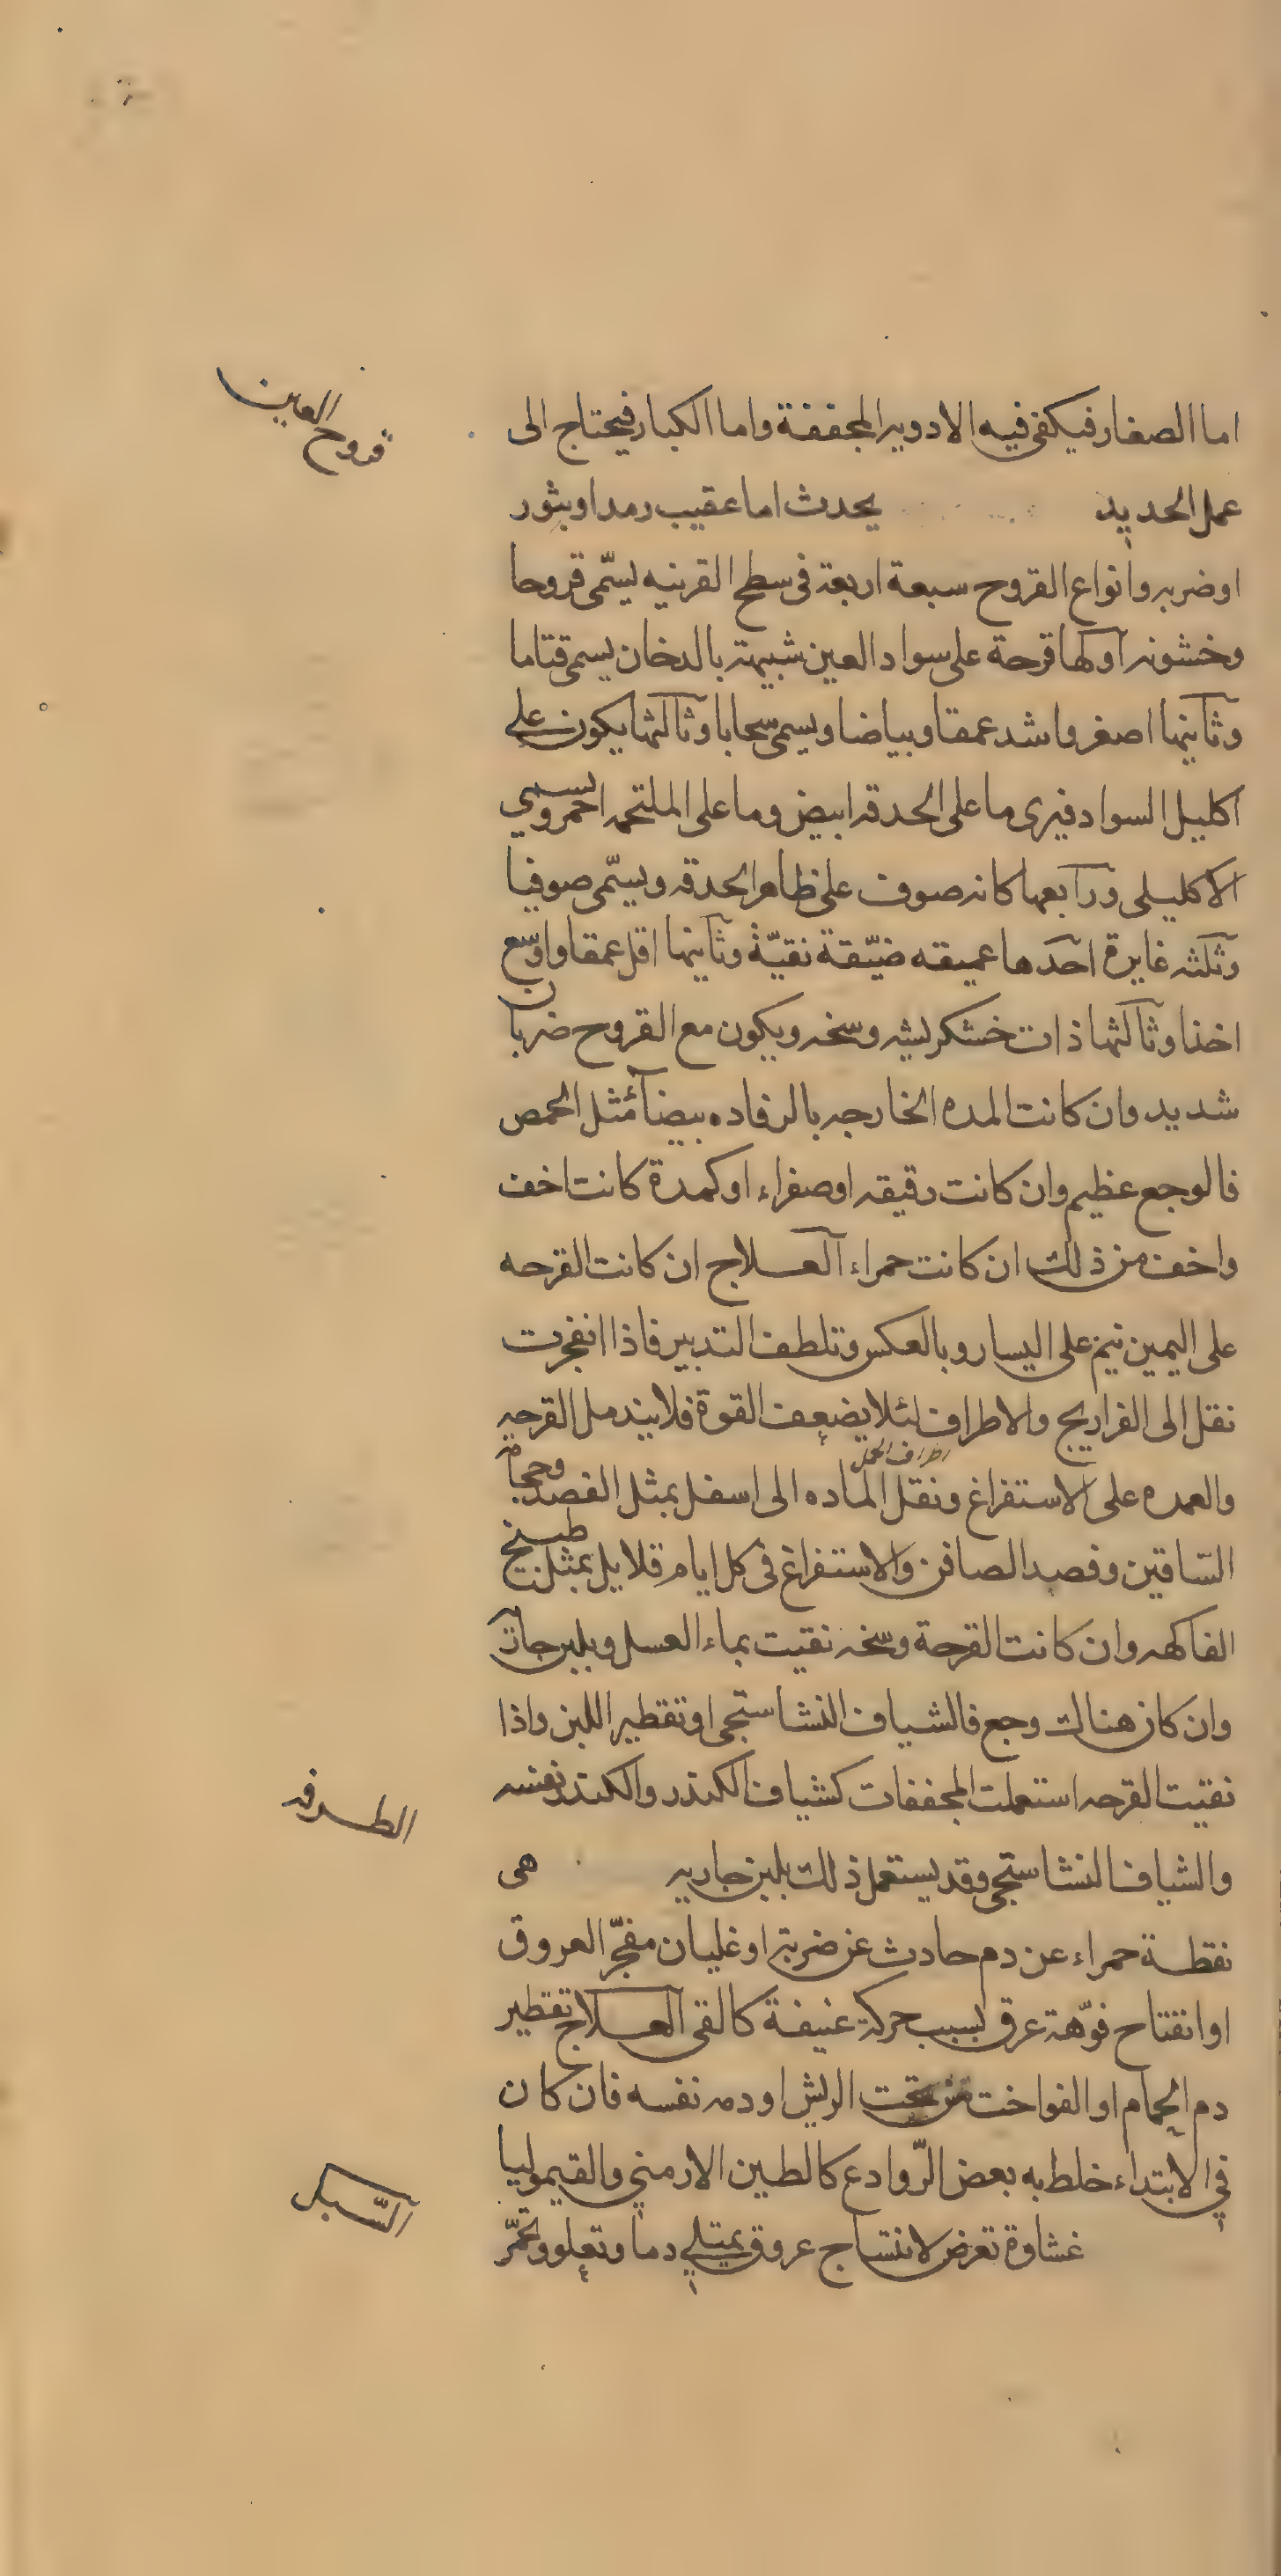 قروح العين
اما الصغار فيكفى فيه الادويه المجففة واما الكبار فيحتاج الى
عمل الحديد يحدث اما عقيب رمد او بثور
او ضربه وانواع القروح سبعة اربعة فى سطح القرنيه يسمّى قروحا
وخشونه اولها قرحة على سواد العين شبيهة بالدخان يسمى قتاما
وثانيها اصغر واشد عمقا وبياضا ويسمى سحابا وثالثها يكون على
اكليل السواد فيرى ما على الحدقه ابيض وما على الملتحمه احمر ويسمى
الاكليلى ورابعها كانه صوف على ظاهر الحدقه ويسمّى صوفيا
وثلثه غايرة احدها عميقه ضيّقة نقيّة وثانيها اقل عمقا واوسع
اخذا وثالثها ذات خشكريشه وسخه ويكون مع القروح ضربان
شديد وان كانت المده الخارجه بالرفاده بيضآء مثل الحمص
فالوجع عظيم وان كانت رقيقه او صفراء او كمدة كانت اخف
واخف من ذلك ان كانت حمراء العلاج ان كانت القرحه
على اليمين نيم على اليسار وبالعكس وتلطف التدبير فاذا انفجرت
نقل الى الفراريج والاطراف لئلا يضعف القوة فلا يندمل القرحه
اطراف الحمل
والعمده على الاستفراغ ونقل الماده الى اسفل بمثل الفصد وحجامة
السّاقين وفصد الصافن والاستفراغ فى كل ايام قلايل بمثل طبيخ
الفاكهه وان كانت القرحة وسخه نقيت بماء العسل وبلبن جاريه
وان كان هناك وجع فالشياف النشاستجى او تقطير اللبن واذا
نقيت القرحه استعملت المجففات كشياف الكندر والكندر نفسه
الطرفه
والشياف النشاستجى وقد يستعمل ذلك بلبن جاريه هى
نقطة حمراء عن دم حادث عن ضربة او غليان مفجّر العروق
او انفتاح فوّهة عرق بسبب حركة عنيفة كالقى العلاج تقطير
دم الحمام او الفواخت من تحت الريش او دمه نفسه فان كان
فى الابتداء خلط به بعض الرّوادع كالطين الارمني والقيموليا
السّبل
غشاوة تعرض لانتساج عروق يمتلي دما وتعلو وتحمّر